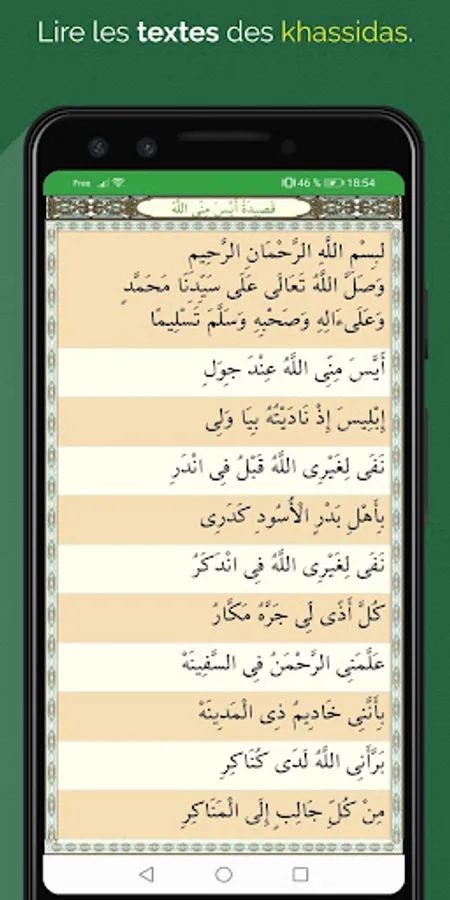 Lire les textes des khassidas.
Free 46 % 18:54
قَصِيدَةُ أَيَّسَ مِنِّى اللَّهُ
لبِسْمِ اللَّهِ الرَّحْمَانِ الرَّحِيمِ
وَصَلَّ اللَّهُ تَعَالَى عَلَى سَيِّدِنَا مَحَمَّدٍ
وَعَلَىءَالِهِ وَصَحْبِهِ وَسَلَّمَ تَسْلِيمًا
أَيَّسَ مِنِّى اللَّهُ عِنْدَ جِوَلِ
إِبْلِيسَ إِذْ نَادَيْتُهُ بِيَا وَلِى
نَفَى لِغَيْرِى اللَّهُ قَبْلُ فِى انْدَرِ
بِأَهْلِ بَدْرٍ الْأُسُودِ كَدَرِى
نَفَى لِغَيْرِى اللَّهُ فِى انْدَكَرُ
كُلَّ أَذًى لِى جَرَّهُ مَكَّارُ
عَلَّمَنِى الرَّحْمَنُ فِى السَّفِينَهْ
بِأَنَّنِى خَادِيمُ ذِى الْمَدِينَهْ
بَرَّأَنِى اللَّهُ لَدَى كُنَاكِرِ
مِنْ كُلِّ جَالِبٍ إِلَى الْمَنَاكِرِ